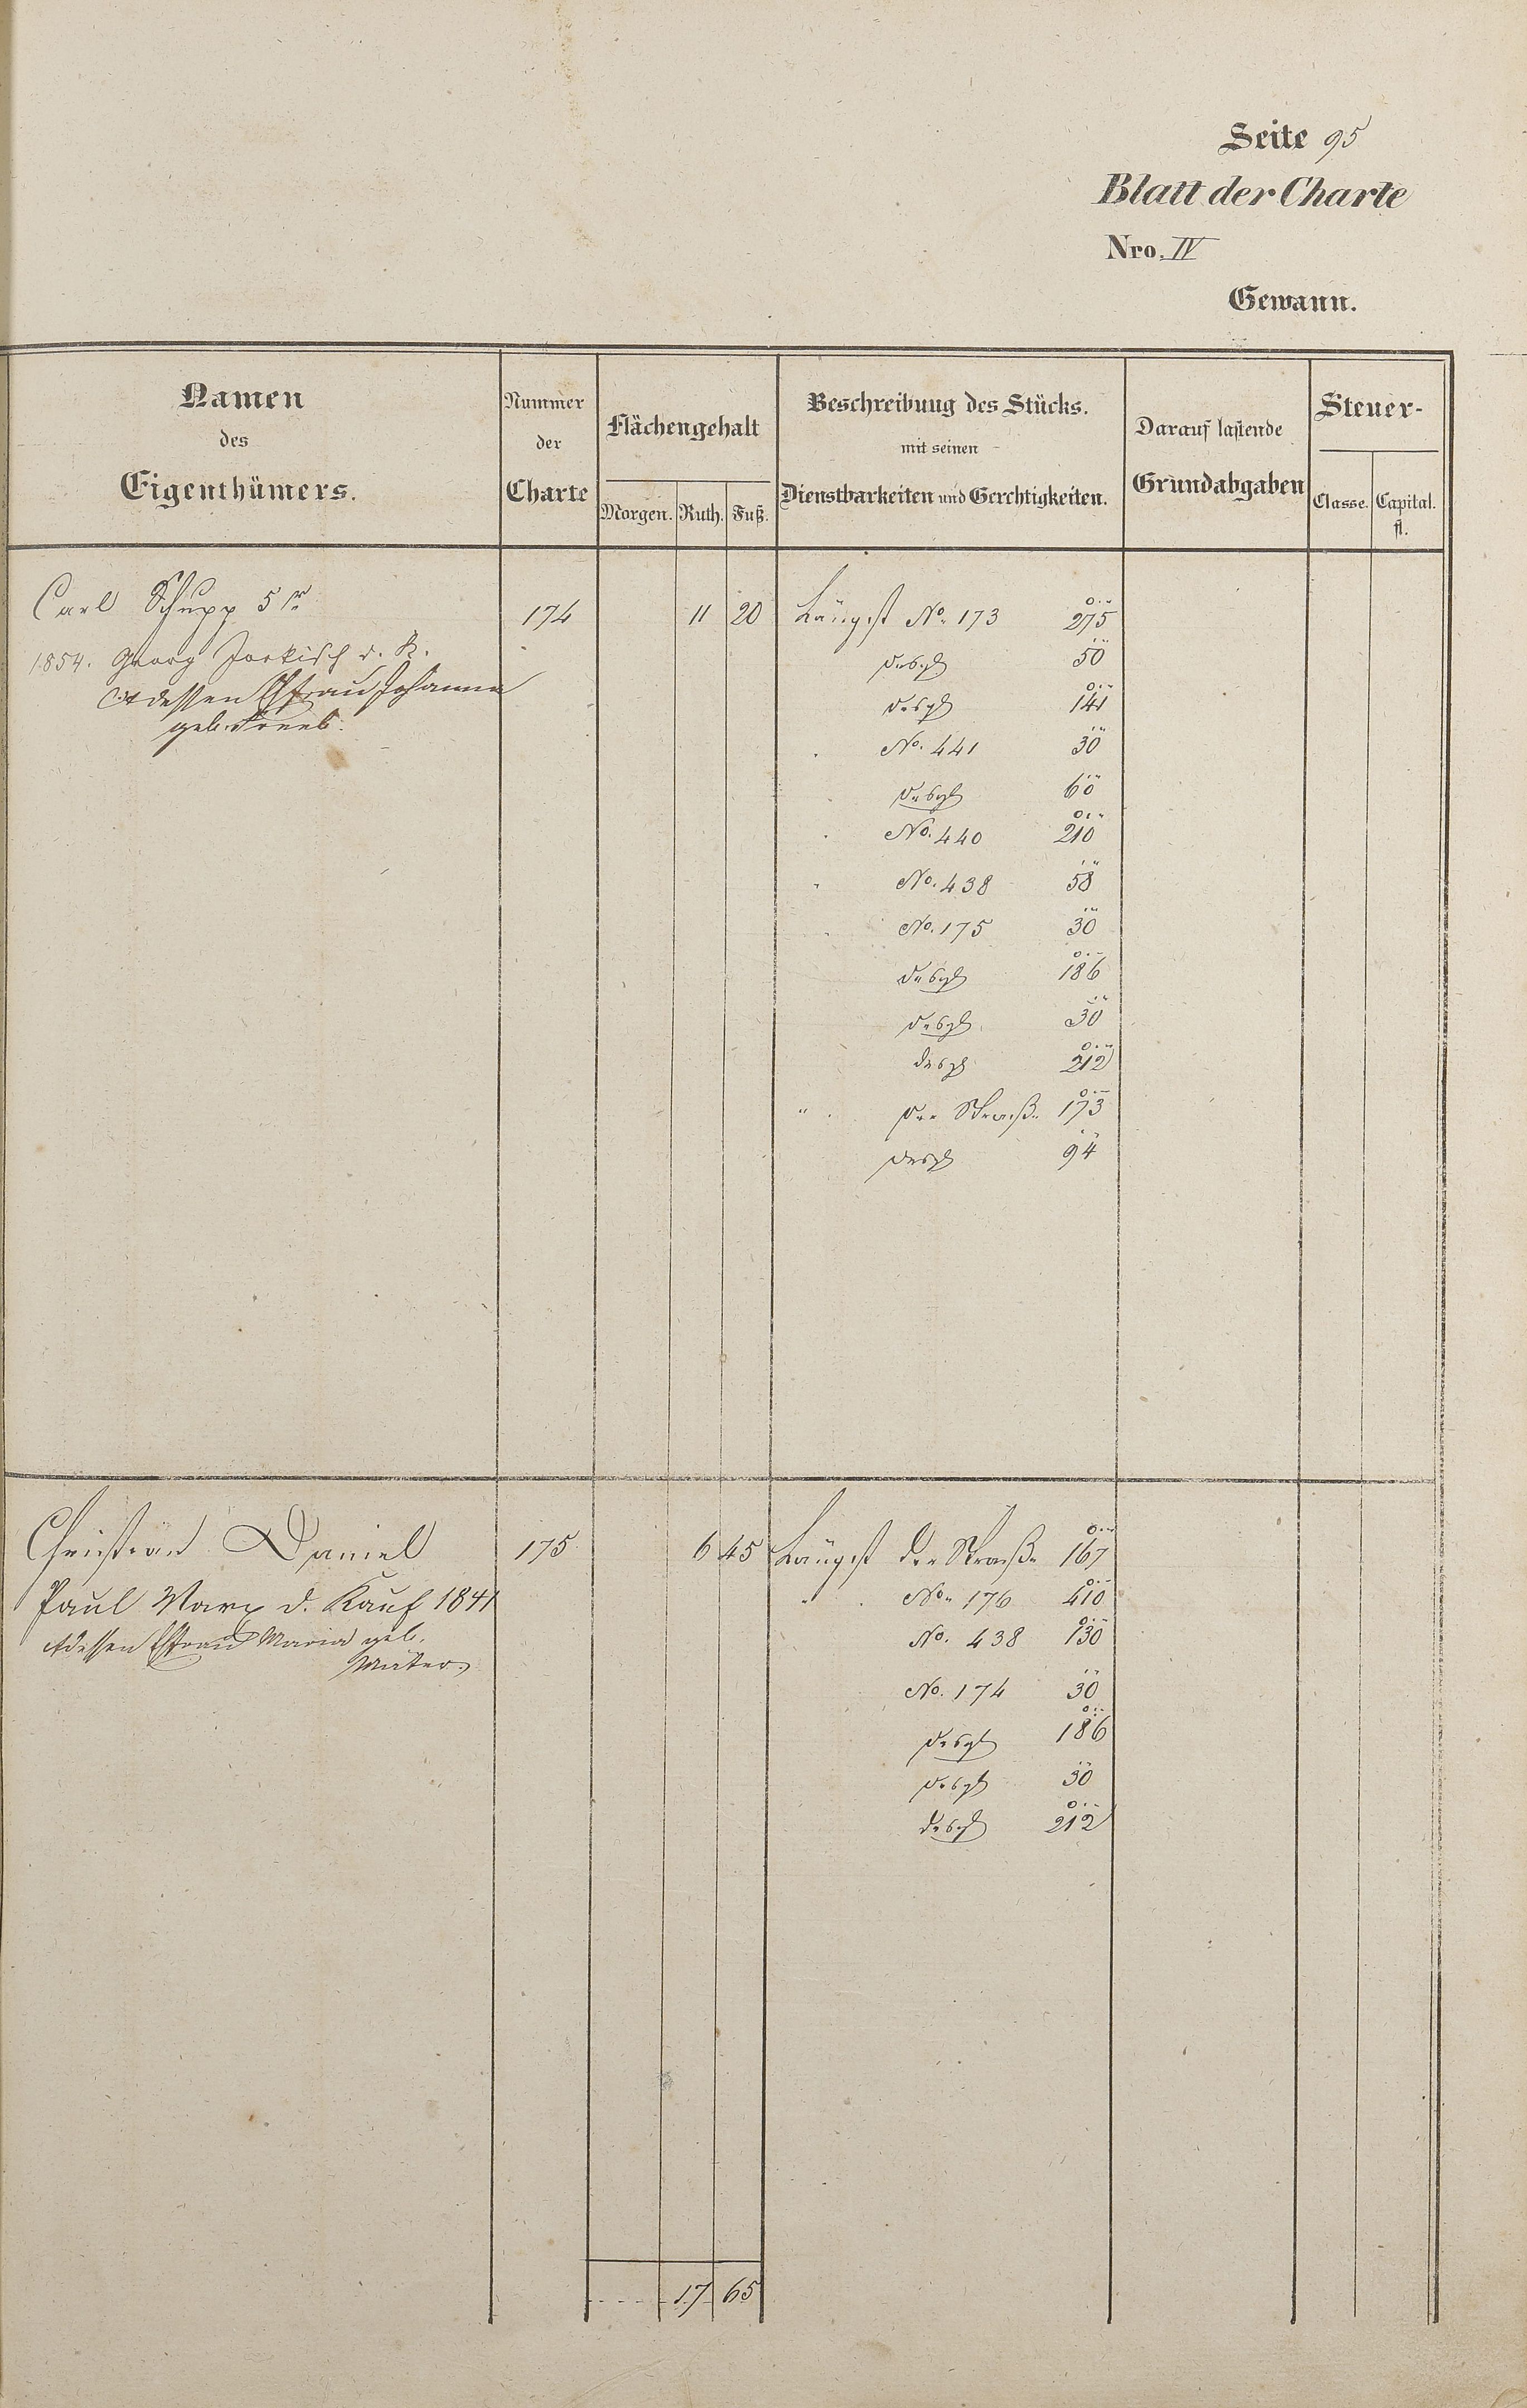 Seite 95
Blatt der Charte
Nro. IV
Gewann.
Namen des Eigenthümers.
Nummer der Charte
Flächengehalt
Morgen. Ruth. Fuß.
Beschreibung des Stücks.
mit seinen
Dienstbarkeiten und Gerechtigkeiten.
Darauf lastende
Grundabgaben
Steuer-
Classe. Capital.
fl.
Carl Schupp 5r 174 11 20 Längst No. 173 275
1854. Georg d. K. desgl 50
dessen Ehfrau Johanna desgl 141
geb.
No. 441 30
desgl 60
No. 440 210
" No. 438 58
No. 175 30
desgl 186
desgl 30
desgl 212
" der Straße 173
desgl 94
Christian Daniel 175 6 45 Längst der Straße 167
Paul Marx d. Kauf 1841 " No. 176 410
dessen Ehfrau Maria geb. No. 438 130
No. 174 30
desgl 186
desgl 30
desgl 212
17 65